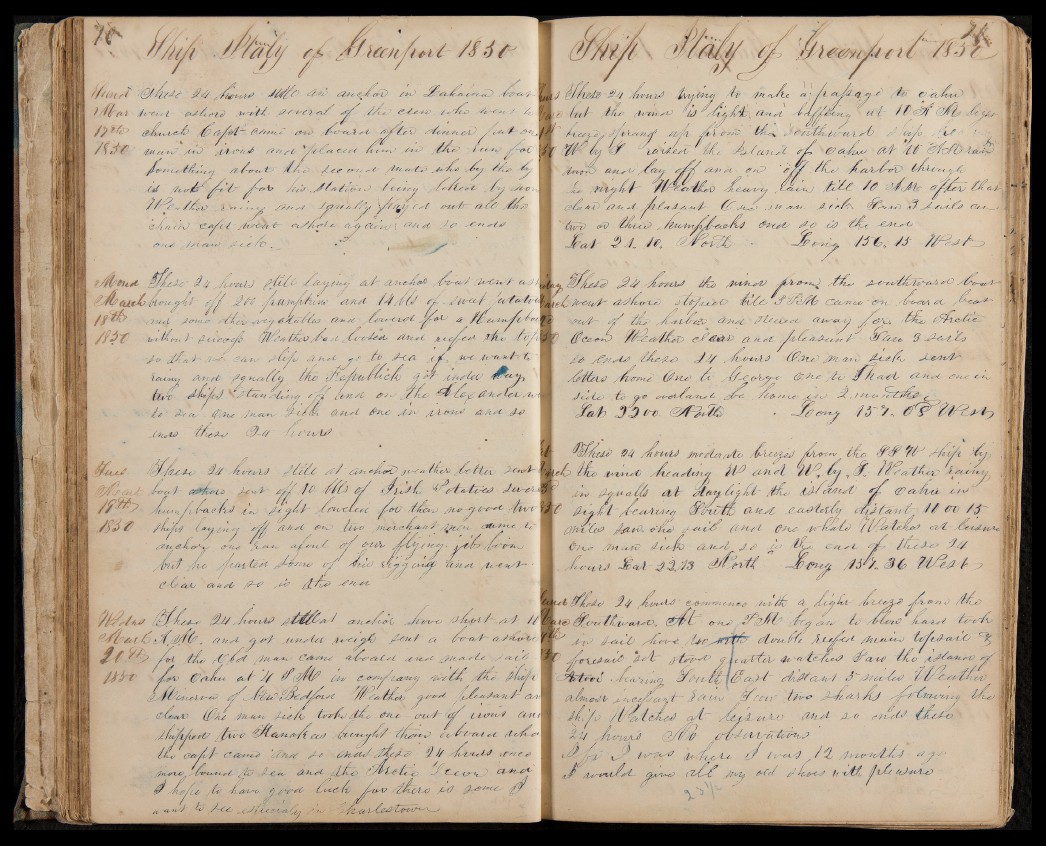 Ship Italy of Greenport 1850
March
17th
1850
These 24 hours still an anchor in Lahaina boat
went ashore with several of the crew who went to
church Capt came on board after dinner put one
man in irons and placed him in the run for
Something about the second mate who by the by
is not fit for his station being looked by
Weather rainy and squally payed out all the
chain capt went ashore again and so ends
one man sick
Mond
March
18th
1850
These 24 hours still laying at anchor boat went
brought off 200 pumpkins and 14 bbls of sweet potatoes
and some other vegatables and lowered for a Humpback
without success Weather bad loosed and reefed the
so that we can slip and go to sea if we want to
rainy and squally the Republick got under way
two ships standing off and on the Alexander
to sea one man sick and one in irons and so
ends these 24 hours
Tues
March
19th
1850
These 24 hours still at anchor weather better sent
boat ashore sent off 10 bbls of Irish Potatoes
humpbacks in sight lowered for them no good two
ships laying off and on two merchant men came to
anchor one ran afoul of our flying jib boom
but he parted some of his rigging and went
clear and so is the end
Wedns
March
20th
1850
These 24 hours still at anchor hove short at 10
A M. and got under weigh sent a boat ashore
for the Old man came aboard and made sail
for Oahu at 4 P M in company with the ship
Minerva of New Bedford Weather good pleasant
clear One man sick took the one out of irons and
shipped two Kanakas brought them aboard when
the capt came and so ends these 24 hours once
more bound to sea and the Arctic Ocean and
I hope to have good luck for there is some I
want to see especially in Charlestown
Ship Italy of Greenport 1850
These 24 hours trying to make a passage to Oahu
but the wind is light and baffling at 10 P M
breeze sprang up from the southward ship
W by S raised the Island of Oahu at 10 Oclk ran
down and lay off and on off the harbor through
the night Weather heavy rain till 10 AM after that
clear and pleasant One man sick Saw 3 sails and
two or three humpbacks and so is the end
Lat 21. 10. North Long 156. 15 West
These 24 hours the wind from the southward boat
went ashore stopped till 3 PM came on board beat
out of the harbor and steered away for the Arctic
Ocean Weather clear and pleasant Saw 3 sails
so ends these 24 hours One man sick sent
letters home One to George One to Thad and one in
side to go overland be home in 2 months
Lat 22 00 North Long 157. 08 West
These 24 hours moderate breezes from the SSW ship by
the wind heading W and W. by S. Weather rainy
in squalls at daylight the island of Oahu in
sight bearing South and easterly distant 10 oo 15
miles saw one sail and one whale Watches at leisure
One man sick and so is the end of these 24
hours Lat 22,13 North Long 157. 36 West
These 24 hours commence with a light breeze from the
Southward. At one P M began to blow hard took
in sail hove to with double reefed main topsail &
foresail set stood quarter watches Saw the island of
Atooi bearing South East distant 5 miles Weather
almost incesant rain Saw two sharks following the
ship Watches at leisure and so ends these
24 hours No observations
If I was where I was 12 months ago
I would give all my old shoes with pleasure